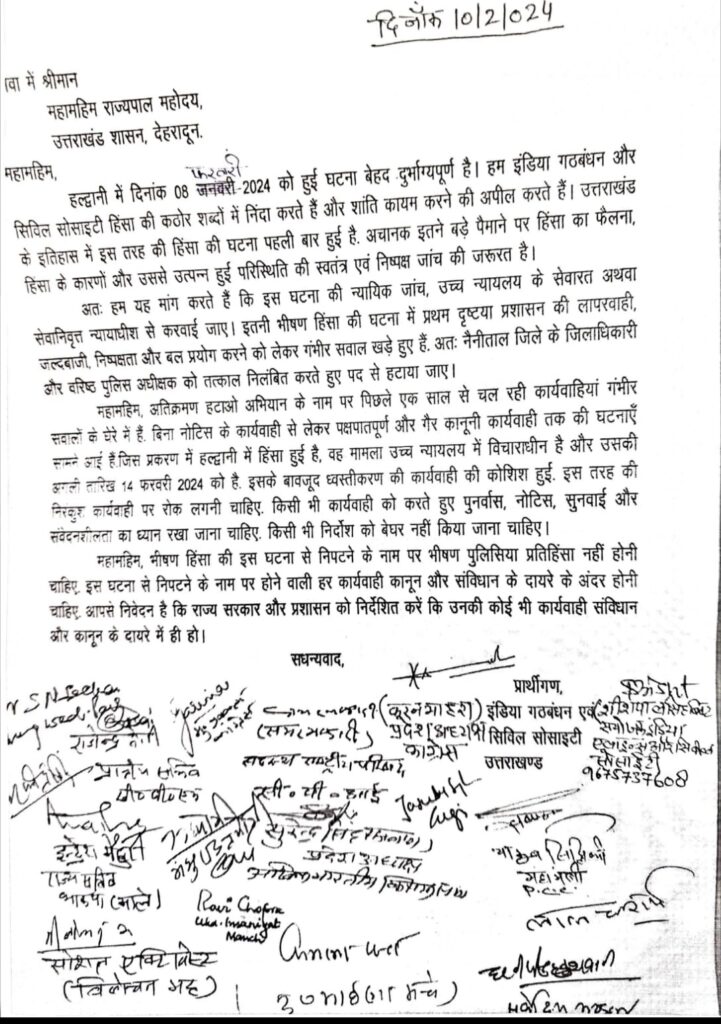 दिनाँक 10/2/024
वा में श्रीमान
महामहिम राज्यपाल महोदय,
उत्तराखंड शासन, देहरादून.
महामहिम,
फरवरी
हल्द्वानी में दिनांक 08 जनवरी 2024 को हुई घटना बेहद दुर्भाग्यपूर्ण है। हम इंडिया गठबंधन और
सिविल सोसाइटी हिंसा की कठोर शब्दों में निंदा करते हैं और शांति कायम करने की अपील करते हैं। उत्तराखंड
के इतिहास में इस तरह की हिंसा की घटना पहली बार हुई है. अचानक इतने बड़े पैमाने पर हिंसा का फैलना,
हिंसा के कारणों और उससे उत्पन्न हुई परिस्थिति की स्वतंत्र एवं निष्पक्ष जांच की जरूरत है।
अतः हम यह मांग करते हैं कि इस घटना की न्यायिक जांच, उच्च न्यायलय के सेवारत अथवा
सेवानिवृत्त न्यायाधीश से करवाई जाए। इतनी भीषण हिंसा की घटना में प्रथम दृष्टया प्रशासन की लापरवाही,
जल्दबाजी, निष्पक्षता और बल प्रयोग करने को लेकर गंभीर सवाल खड़े हुए हैं. अतः नैनीताल जिले के जिलाधिकारी
और वरिष्ठ पुलिस अधीक्षक को तत्काल निलंबित करते हुए पद से हटाया जाए।
महामहिम, अतिक्रमण हटाओ अभियान के नाम पर पिछले एक साल से चल रही कार्यवाहियां गंभीर
सवालों के घेरे में हैं. बिना नोटिस के कार्यवाही से लेकर पक्षपातपूर्ण और गैर कानूनी कार्यवाही तक की घटनाएँ
सामने आई हैं.जिस प्रकरण में हल्द्वानी में हिंसा हुई है, वह मामला उच्च न्यायलय में विचाराधीन है और उसकी
अगली तारिख 14 फरवरी 2024 को है. इसके बावजूद ध्वस्तीकरण की कार्यवाही की कोशिश हुई. इस तरह की
निरंकुश कार्यवाही पर रोक लगनी चाहिए. किसी भी कार्यवाही को करते हुए पुनर्वास, नोटिस, सुनवाई और
संवेदनशीलता का ध्यान रखा जाना चाहिए. किसी भी निर्दोश को बेघर नहीं किया जाना चाहिए।
महामहिम, भीषण हिंसा की इस घटना से निपटने के नाम पर भीषण पुलिसिया प्रतिहिंसा नहीं होनी
चाहिए. इस घटना से निपटने के नाम पर होने वाली हर कार्यवाही कानून और संविधान के दायरे के अंदर होनी
चाहिए. आपसे निवेदन है कि राज्य सरकार और प्रशासन को निर्देशित करें कि उनकी कोई भी कार्यवाही संविधान
और कानून के दायरे में ही हो।
सधन्यवाद,
प्रार्थीगण,
इंडिया गठबंधन एवं
सिविल सोसाइटी
उत्तराखण्ड
(करन माहरा)
प्रदेश अध्यक्ष
कांग्रेस
(समर भंडारी)
सदस्य राष्ट्रीय परिषद
सी० पी० आई
सोसाइटी
9675737608
इन्द्रेश मैखुरी
राज्य सचिव
भाकपा (माले)
प्रदेश अध्यक्ष
Ravi Chopra
Uka. Insaniyat
Manch
महामंत्री
P.C.C.
सोशल एक्टिविस्ट